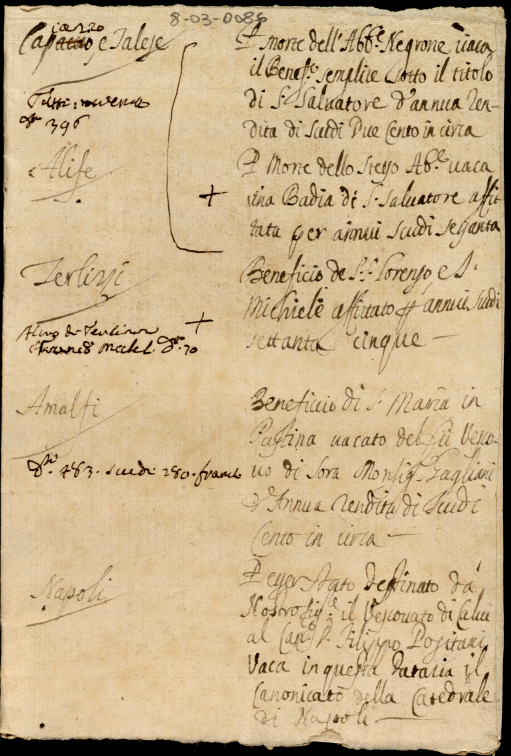 8-03-0086
Capaccio e Taleje
P morte dell'Abb.e Negrone, vaca
il Benef.o semplice sotto il titolo
di S. Salvatore d'annua Ren-
dita di Scudi Due Cento in circa
396
Alife
P Morte dello stesso Ab.e vaca
+ una Badia di S. Salvatore affit-
tata per annui Scudi sessanta
Terlizzi
Beneficio de S.S. Lorenzo e S.
+ Michiele affittato p annui Scudi
settanta cinque —
70
Amalfi
Beneficio di S. Maria in
Pastina vacato del fù Vesco-
vo di Sora Monsig. Gagliani
d'Annua Rendita di Scudi
Cento in circa —
D.ti 463. scudi 280. franchi
Napoli
P esser stato destinato da
Nostro Sig.re il Vescovato di Calvi
al Can.co D. Filippo Positani
Vaca in questa Dataria il
Canonicato della Catedrale
di Napoli —